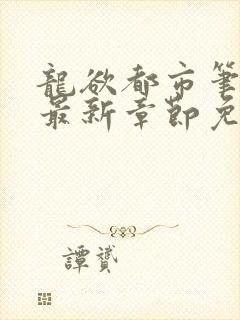 龍欲都市筆
最新章節免
譚贇